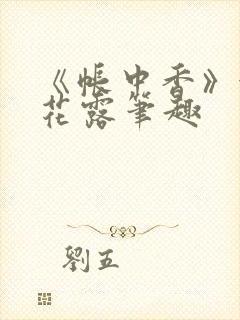 《帐中香》
花露笔趣
劉五